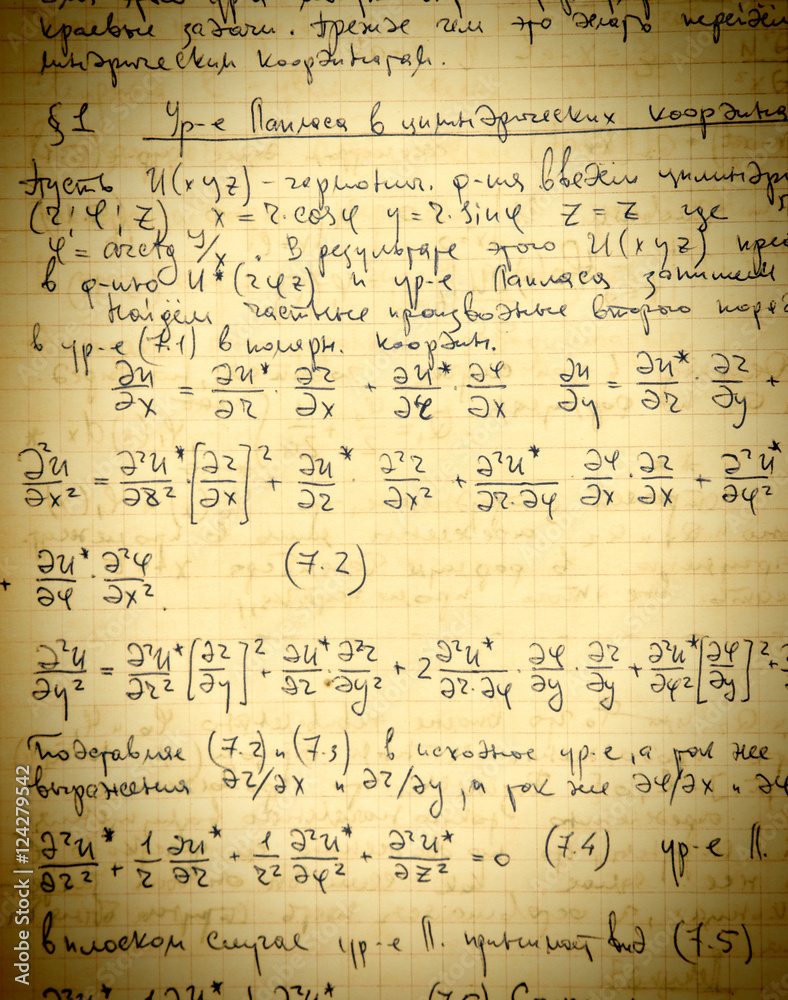 краевые задачи. Прежде чем это делать перейдём
линдрическим координатам.
§1 Ур-е Лапласа в цилиндрических коорdина
Пусть U(xyz) – гармонич. ф-ция. Введём цилиндри
(r; φ; z) x = r·cosφ y = r·sinφ z = z где
φ = arctg y/x. В результате этого U(xyz)
в ф-цию U*(rφz) и ур-е Лапласа запишем
Найдём частные производные второго поряд
в ур-е (7.1) в полярн. координ.
∂u/∂x = ∂u*/∂r · ∂r/∂x + ∂u*/∂φ · ∂φ/∂x ∂u/∂y = ∂u*/∂r · ∂r/∂y +
∂²u/∂x² = ∂²u*/∂r² [∂r/∂x]² + ∂u*/∂r · ∂²r/∂x² + ∂²u*/∂r·∂φ · ∂φ/∂x · ∂r/∂x + ∂²u*/∂φ²
+ ∂u*/∂φ · ∂²φ/∂x². (7.2)
∂²u/∂y² = ∂²u*/∂r² [∂r/∂y]² + ∂u*/∂r · ∂²r/∂y² + 2 ∂²u*/∂r·∂φ · ∂φ/∂y · ∂r/∂y + ∂²u*/∂φ² [∂φ/∂y]² +
Подставляя (7.2) и (7.3) в исходное ур-е, а так же
выражения ∂r/∂x и ∂r/∂y, а так же ∂φ/∂x и ∂φ
∂²u*/∂r² + 1/r ∂u*/∂r + 1/r² ∂²u*/∂φ² + ∂²u*/∂z² = 0 (7.4) ур-е Л.
в плоском случае ур-е Л. принимает вид (7.5)
Adobe Stock | #124279542